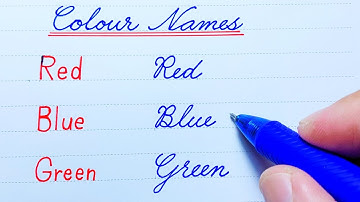 Colour Names
Red Red
Blue Blue
Green Green